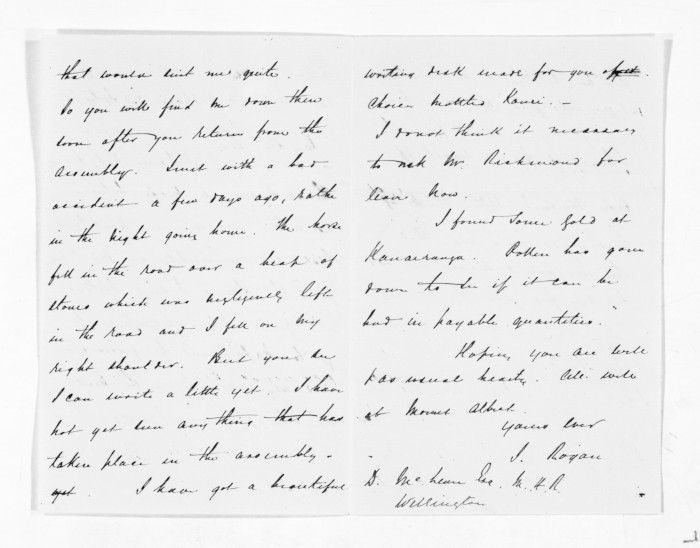 that would suit me quite.
So you will find me down there
soon after you return from the
Assembly. I met with a bad
accident a few days ago, rathe
in the night going home. The horse
fell in the road over a heap of
stones which was negligently left
in the road and I fell on my
right shoulder. But you see
I can write a little yet I have
not yet seen any thing that has
taken place in the assembly -
yet I have got a beautiful
writing desk made for you
Choice mottled Kauri. -
I do not think it necessary
to ask Mr. Richmond for
leave now.
I found some gold at
Kanaeranga. Pollen has gone
down to see if it can be
had in payable quantities.
Hoping you are well
& as usual hearty. All well
at Mount Albert.
Yours ever
J. Rogan
D. McLean Esq. M.H.R.
Wellington